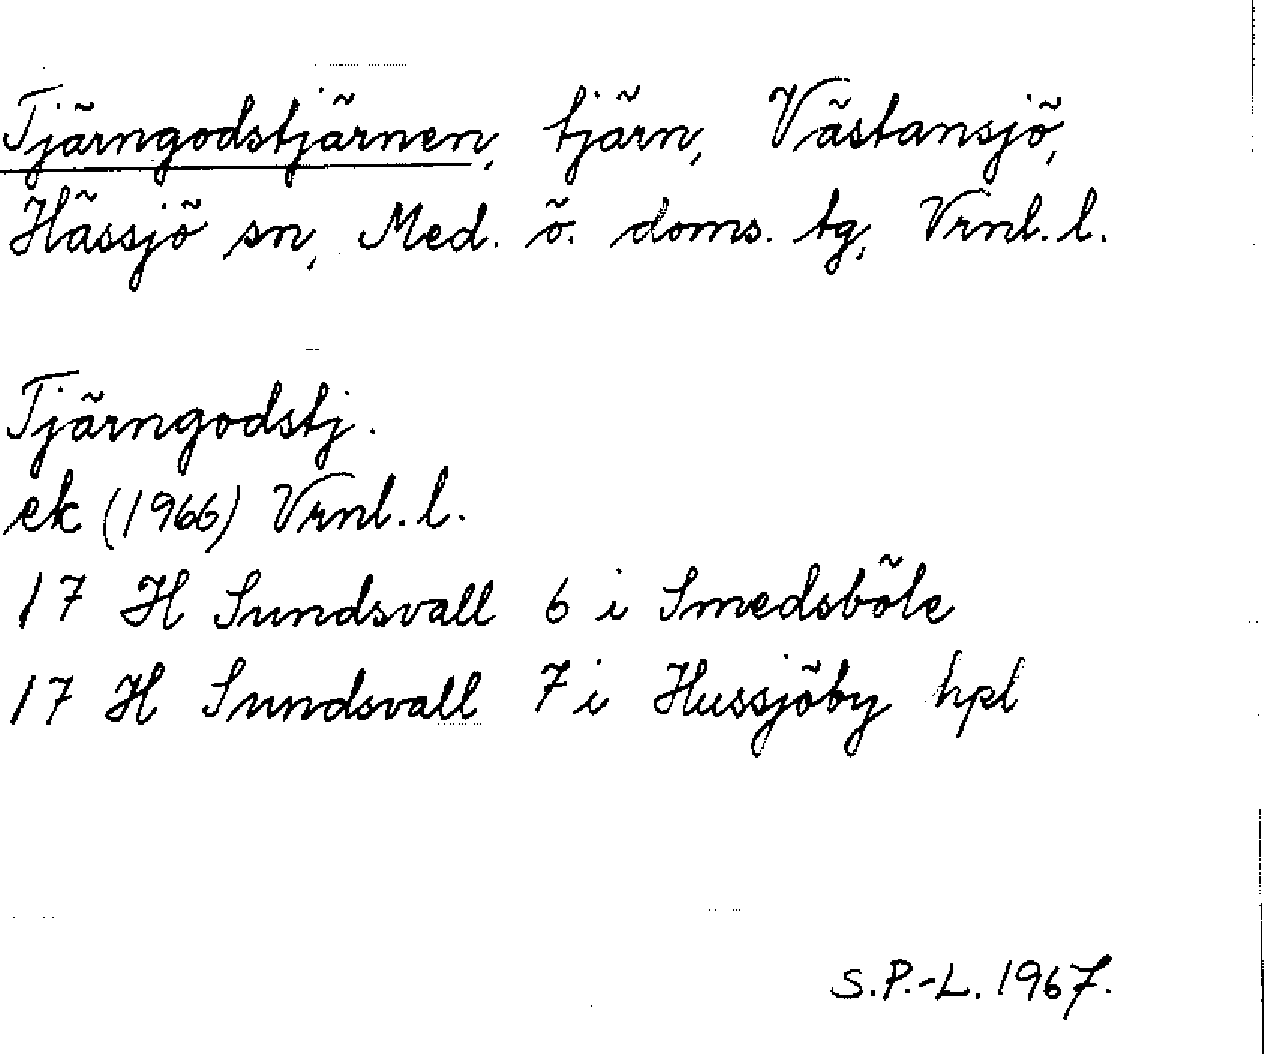 Tjärngodstjärnen, tjärn, Västansjö,
Hässjö sn, Med. ö. doms. tg, Vrnl. l.
Tjärngodstj.
ek (1966) Vrnl. l.
17 H Sundsvall 6 i Smedsböle
17 H Sundsvall 7 i Hussjöby hpl
S.P.-L. 1967.